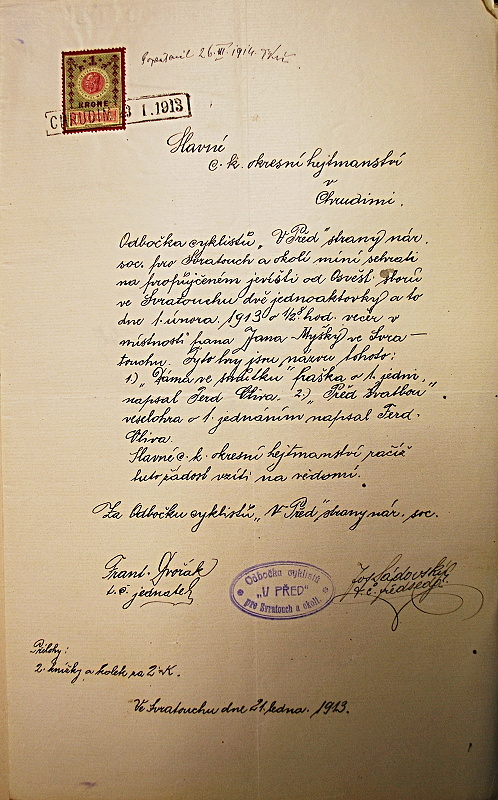 26. III. 1914.
1
KRONE
CHRUDIM 3 1.1913
Slavné
c. k. okresní hejtmanství
v
Chrudimi.
Odbočka cyklistů „V Před" strany nár.
soc. pro Svratouch a okolí míní sehrati
na propůjčeném jevišti od Osvěť. sborů
ve Svratouchu dvě jednoaktovky a to
dne 1. února 1913 o ½8 hod. večer v
místnosti pana Jana Myšky ve Svra-
touchu. Tyto hry jsou názvu tohoto:
1.) „Dáma ve smutku" fraška o 1. jedn.,
napsal Ferd Oliva. 2.) „Před svatbou"
veselohra o 1. jednáním napsal Ferd.
Oliva.
Slavné c. k. okresní hejtmanství račiž
tuto žádost vzíti na vědomí.
Za Odbočku cyklistů „V Před" strany nár. soc.
Frant. Dvořák
t. č. jednatel
Odbočka cyklistů
„V PŘED"
pro Svratouch a okolí.
Jos. Sádovský
t. č. předseda
Přílohy:
2. knížky a kolek za 2·K.
Ve Svratouchu dne 21. ledna. 1913.